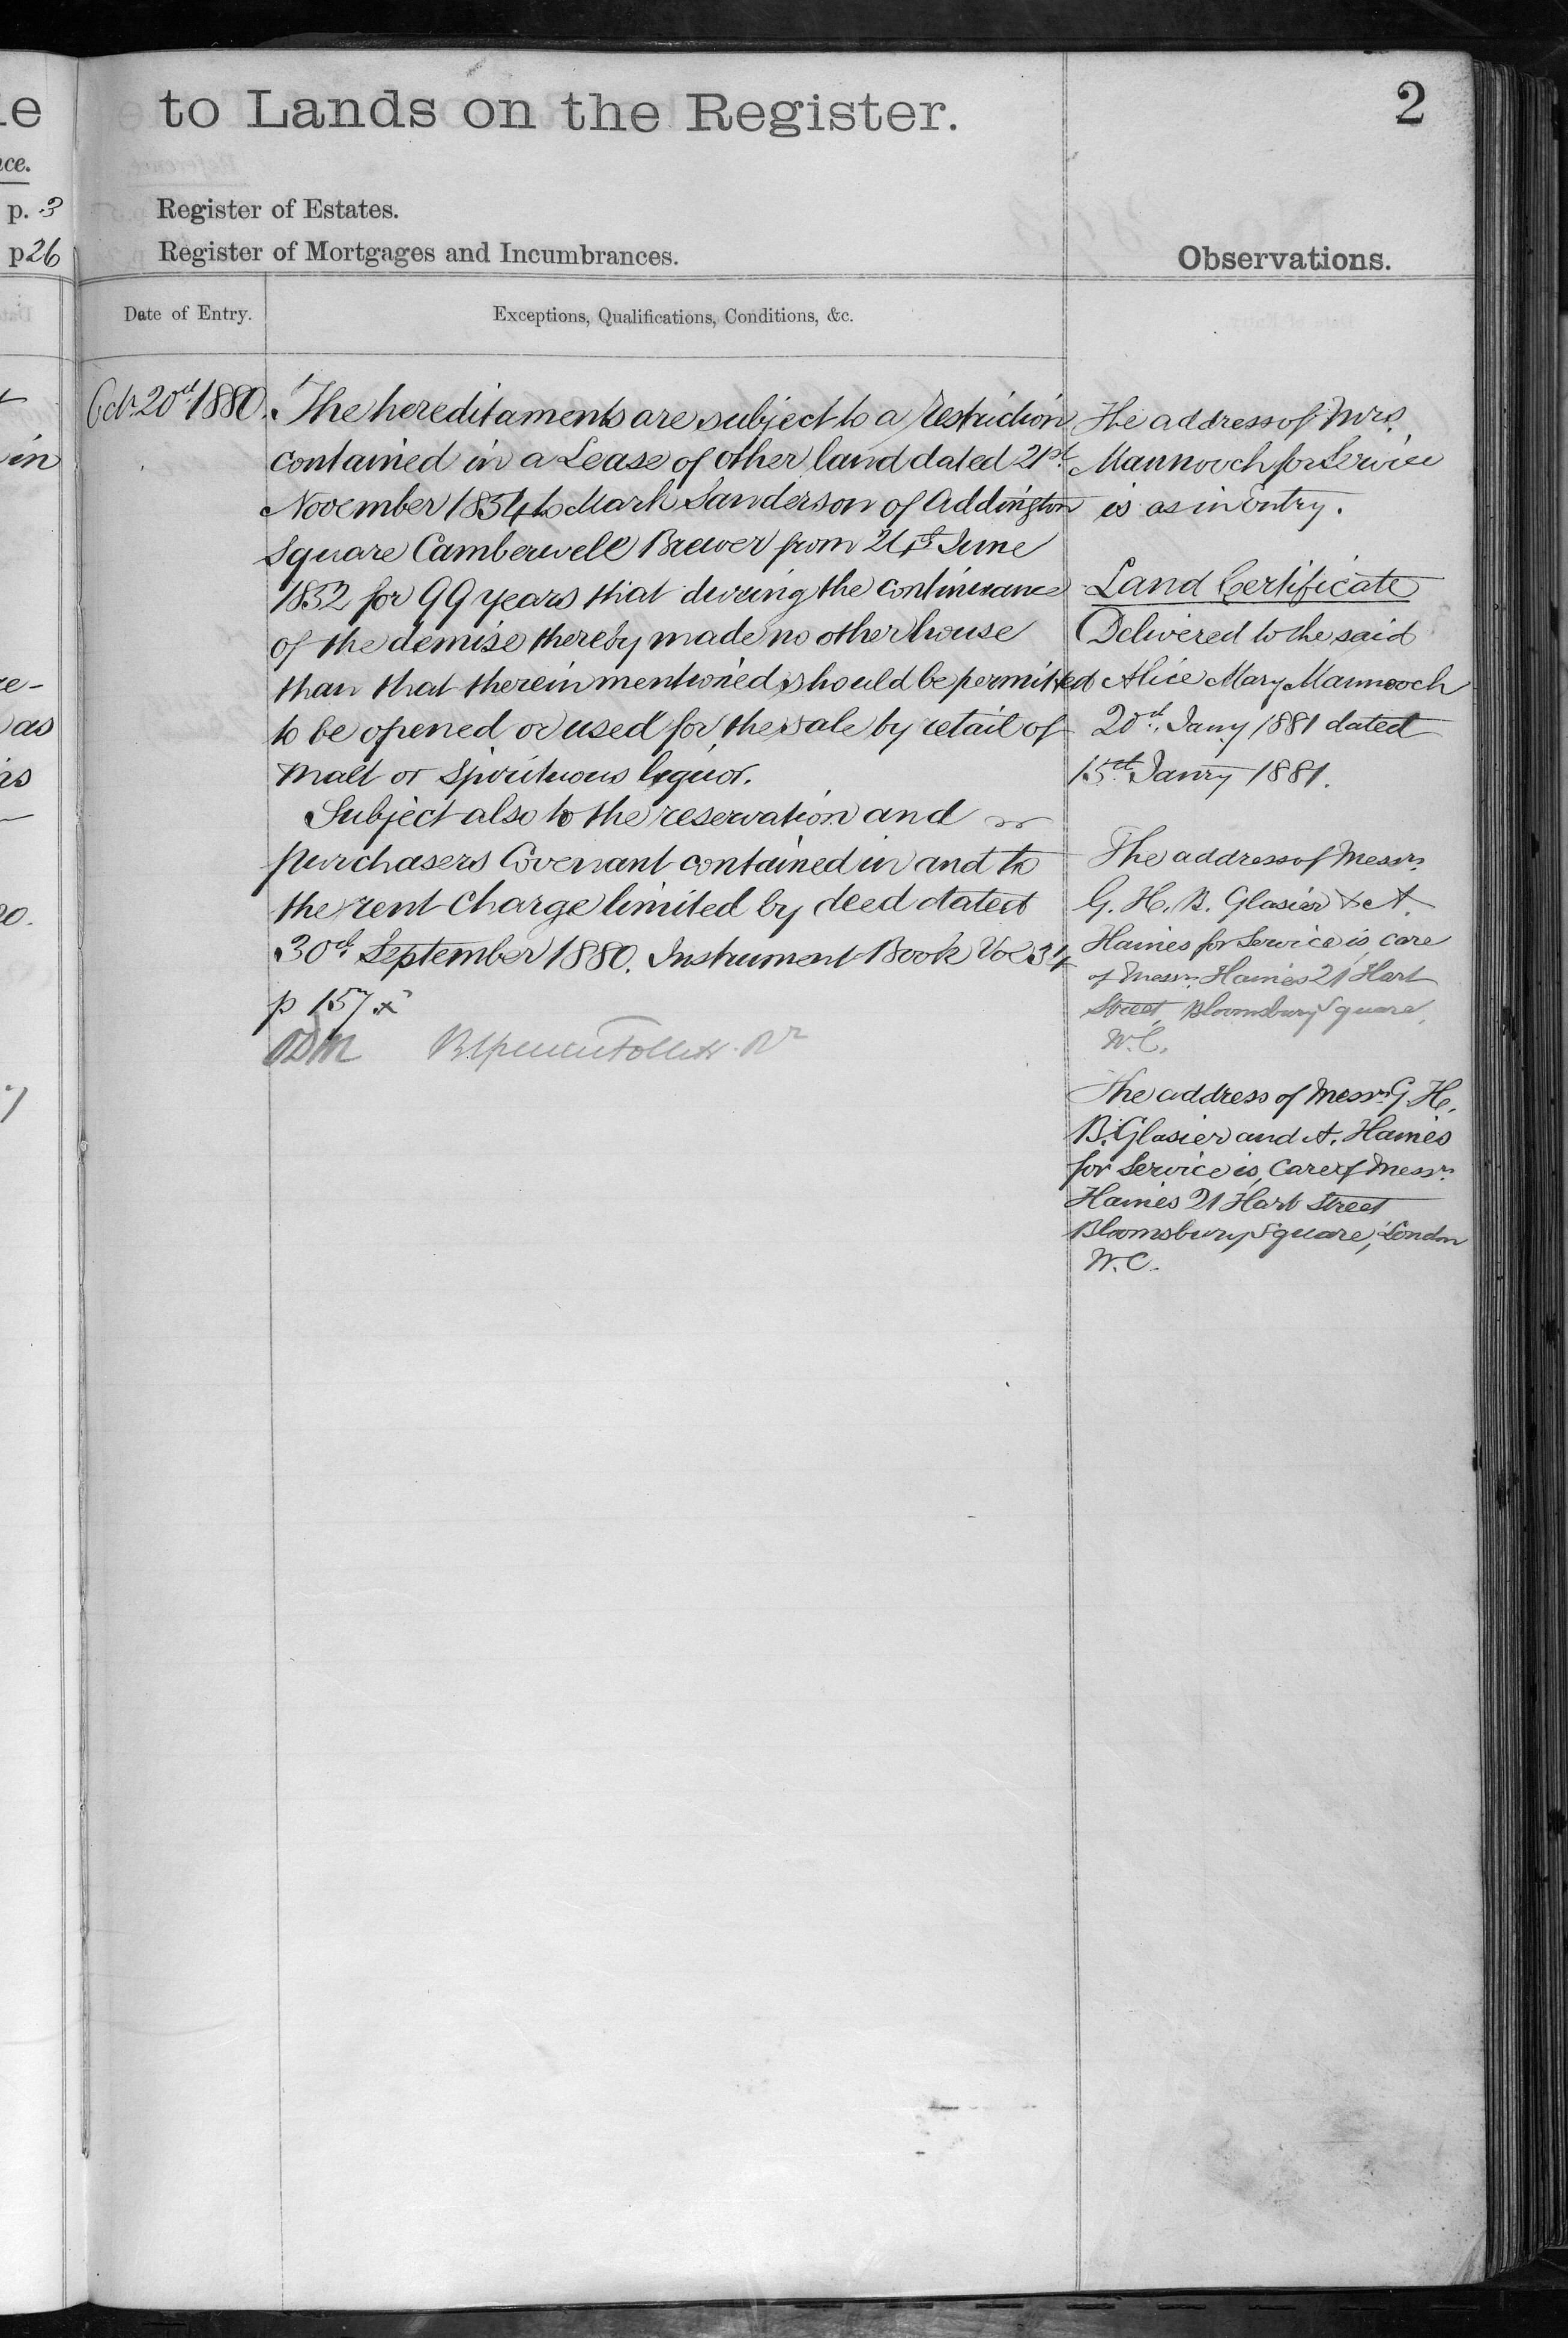 to Lands on the Register.
2
p. 3
Register of Estates.
p 26
Register of Mortgages and Incumbrances.
Observations.
Date of Entry.
Exceptions, Qualifications, Conditions, &c.
Octr. 20th 1880.
The hereditaments are subject to a restriction
contained in a Lease of other land dated 21st
November 1834 to Mark Sanderson of Addington
Square Camberwell Brewer from 24th June
1832 for 99 years that during the continuance
of the demise thereby made no other house
than that therein mentioned should be permitted
to be opened or used for the sale by retail of
malt or Spirituous liquor.
Subject also to the reservation and
purchasers Covenant contained in and to
the rent Charge limited by deed dated
30th September 1880. Instrument Book Vol 34
p 157
The address of Mrs.
Mannooch for Service
is as in Entry.
Land Certificate
Delivered to the said
Alice Mary Mannooch
20th Jany 1881 dated
15th Janry 1881.
The address of Messrs.
G. H. B. Glasier & A.
Haines for Service is, care
of Messrs. Haines 21 Hart
Street, Bloomsbury Square,
W.C.
The address of Messrs. G. H.
B. Glasier and A. Haines
for Service is, Care of Messrs.
Haines 21 Hart Street
Bloomsbury Square, London
W.C.